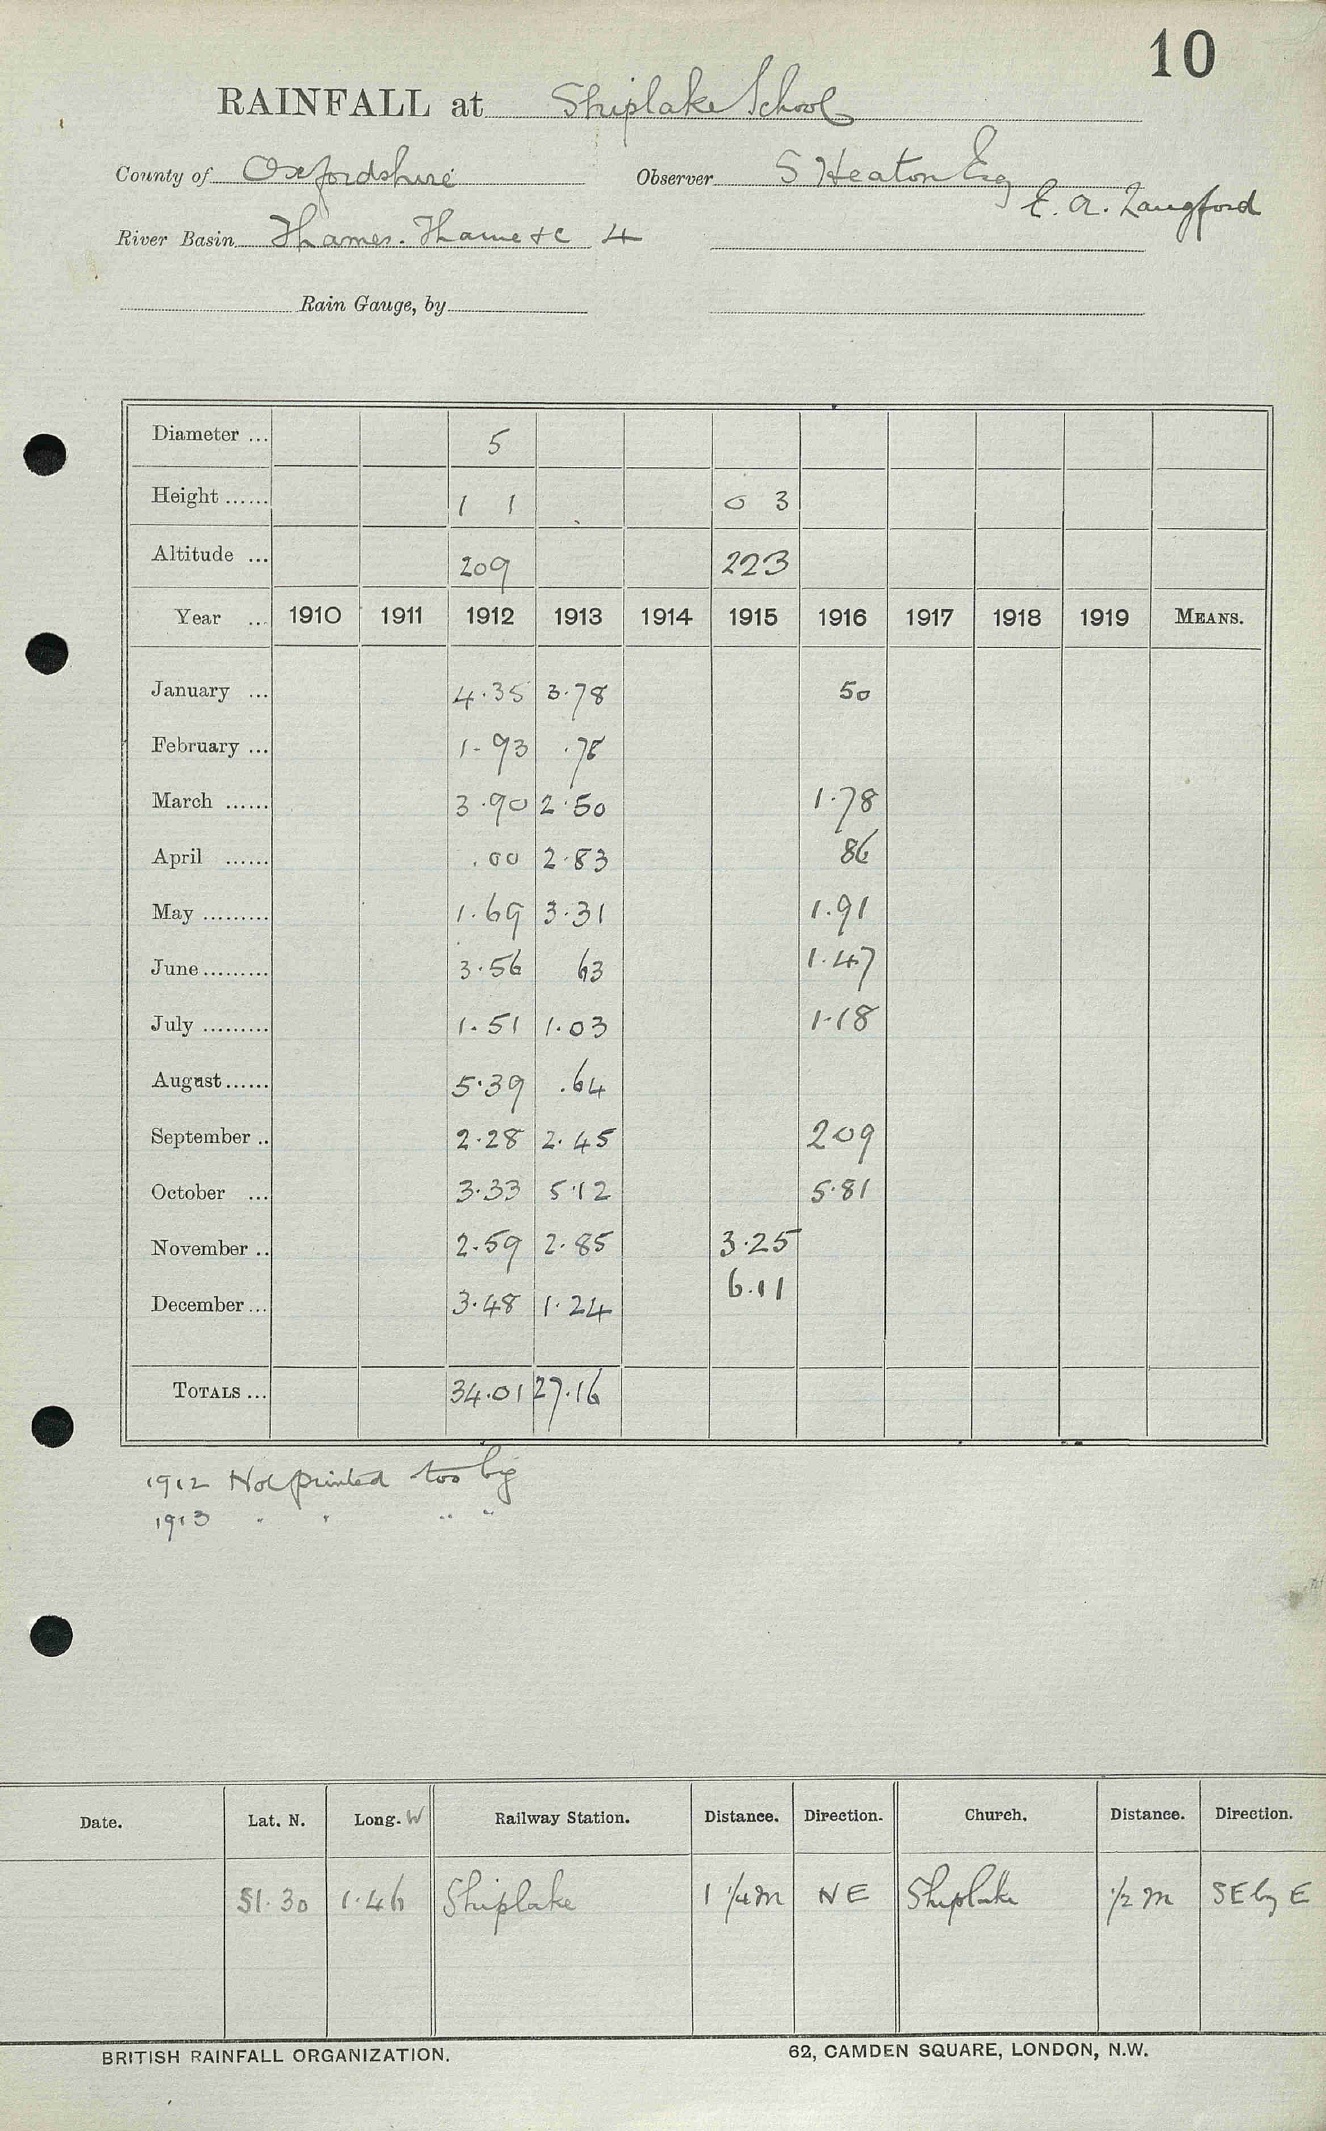 10
RAINFALL at Shiplake School
County of Oxfordshire Observer S Heaton Esq
E. A. Langford
River Basin Thames. Thame &c 4
Rain Gauge, by
Diameter ... 5
Height ...... 1 1 0 3
Altitude ... 209 223
Year ... 1910 1911 1912 1913 1914 1915 1916 1917 1918 1919 MEANS.
January ... 4.35 3.78 50
February ... 1.93 .78
March ...... 3.90 2.50 1.78
April ...... .00 2.83 86
May ......... 1.69 3.31 1.91
June ......... 3.56 63 1.47
July ......... 1.51 1.03 1.18
August ...... 5.39 .64
September .. 2.28 2.45 209
October ... 3.33 5.12 5.81
November .. 2.59 2.85 3.25
December ... 3.48 1.24 6.11
TOTALS ... 34.01 27.16
1912 Not printed too big
1913 " " " "
Date. Lat. N. Long. W Railway Station. Distance. Direction. Church. Distance. Direction.
51.30 1.46 Shiplake 1 1/4 m NE Shiplake 1/2 m SE by E
BRITISH RAINFALL ORGANIZATION. 62, CAMDEN SQUARE, LONDON, N.W.